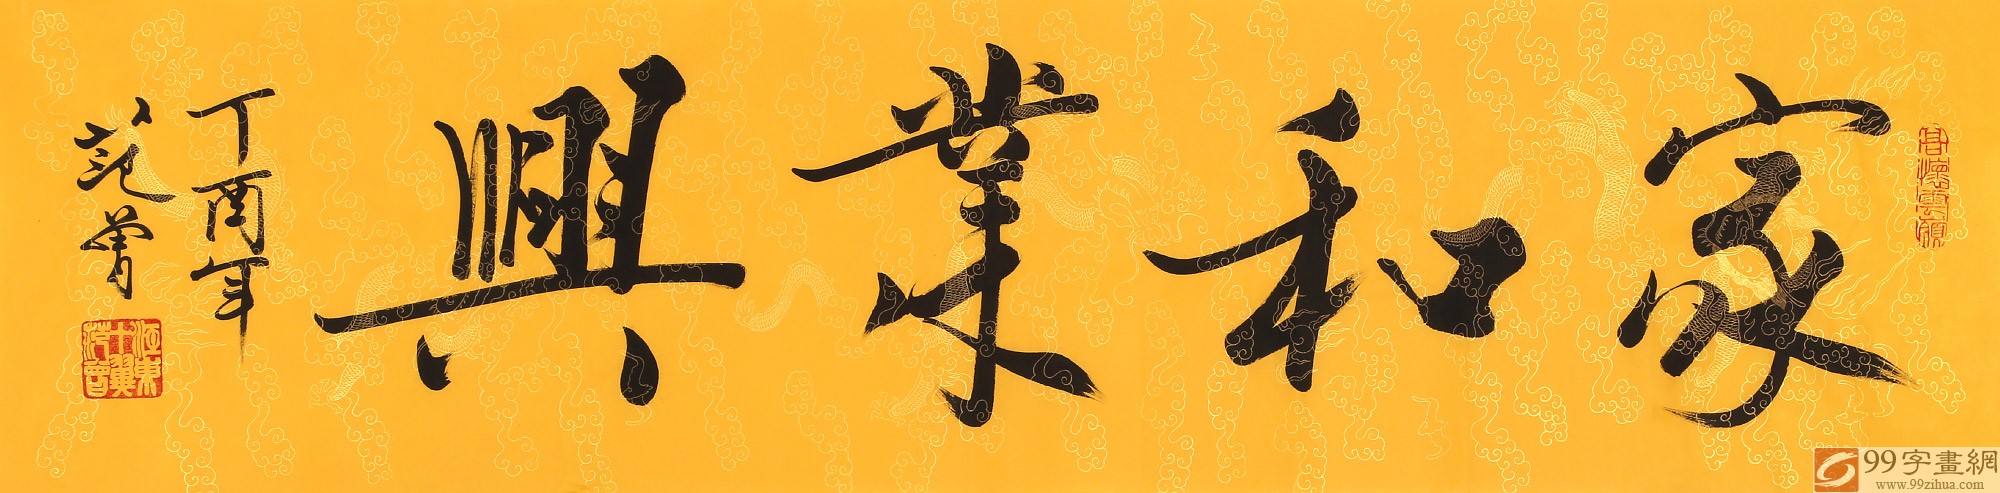 家和業興
丁酉年
范曾
99字畫網
www.99zihua.com